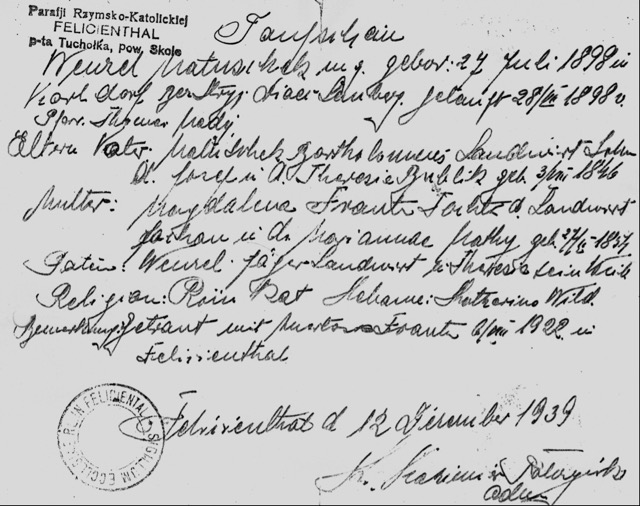 Parafji Rzymsko-Katolickiej
FELICIENTHAL
p-ta Tuchołka, pow. Skole
Taufschein
Wenzel Matuschek m. g. gebor: 27 Juli 1898 in
Karlsdorf getauft 28/VII 1898 v.
Pfarr. Thomas
Eltern Vater: Matuschek Bartholomeus Landwirt Sohn
d. Josef u. d. Theresie Bublik geb. 3/VIII 1846
Mutter: Magdalena Frantz Tochter d. Landwirt
u. d. Mariannae geb. 1857
Paten: Wenzel Jäger Landwirt u. Theresie sein Weib
Religion: Röm Kat Hebame: Katherina Wild.
Bemerkung: Getraut mit Frantz 1922 in
Felizienthal
Felizienthal d 12 Dezember 1939
Ks. Kazimierz
SIGILLUM ECCLESIAE R. L. IN FELICIENTAL